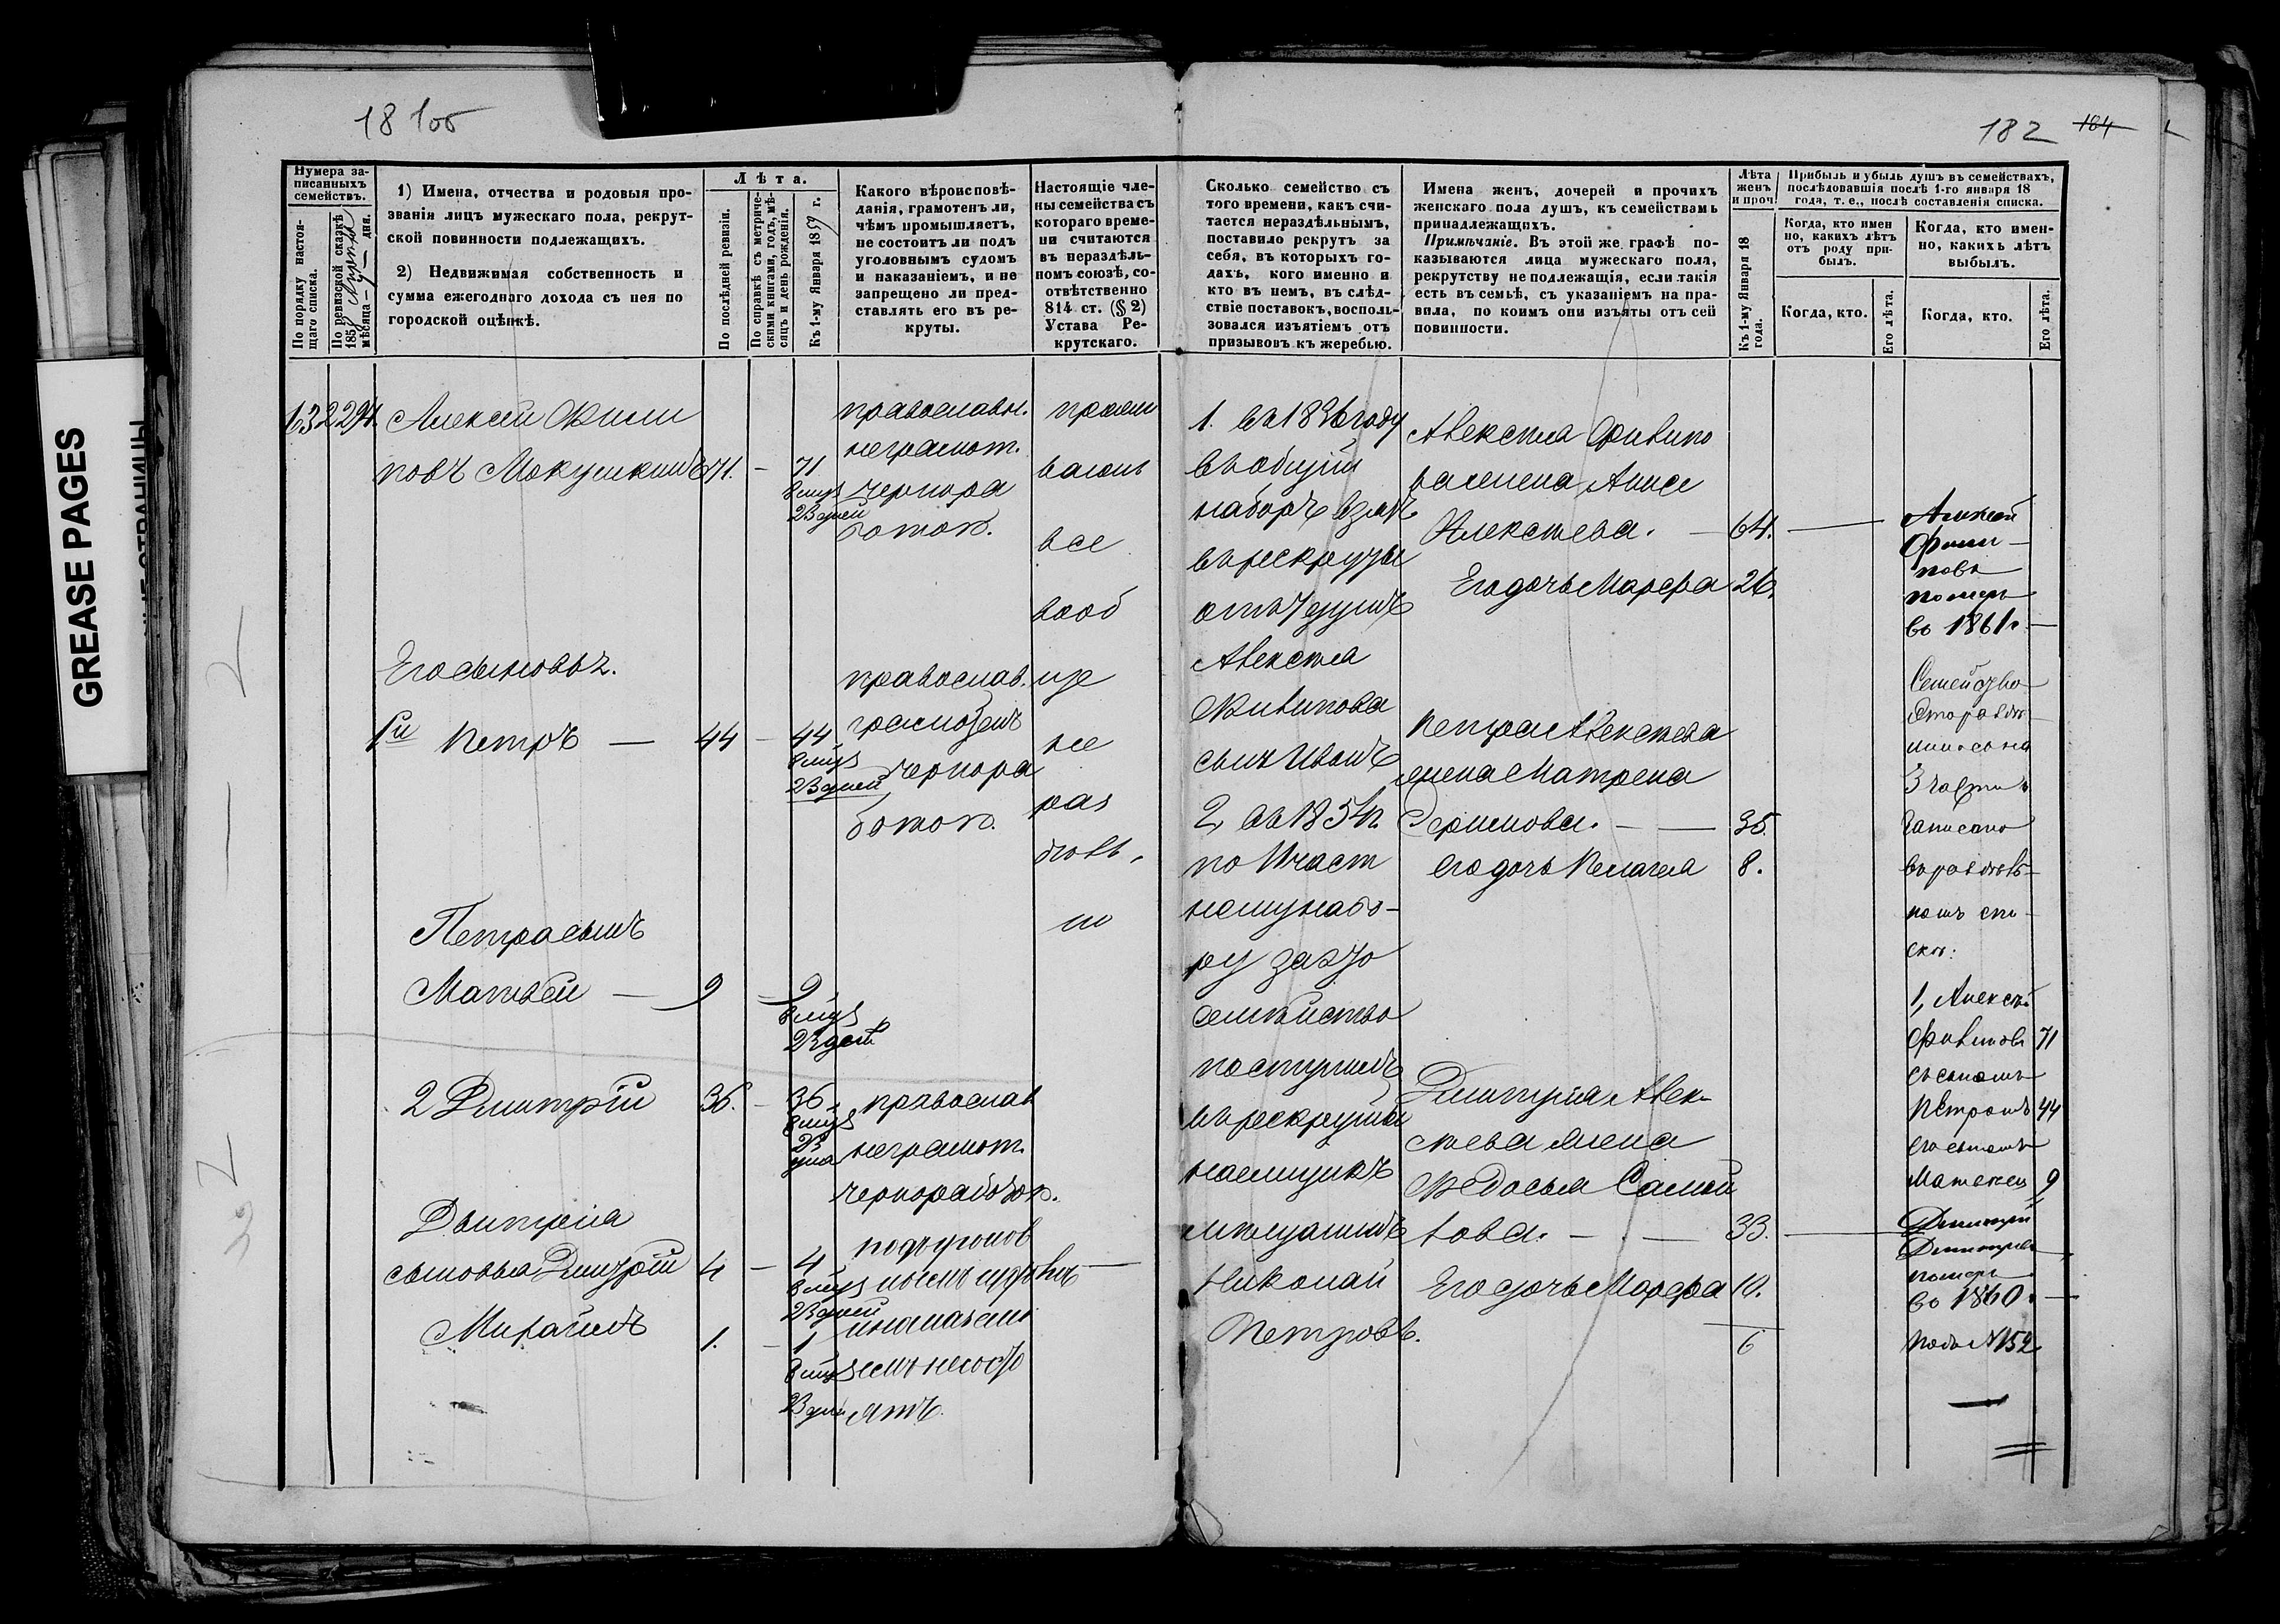 181об
182 184
GREASE PAGES
Нумера записанныхъ семействъ.
По порядку настоящаго списка.
По ревизской сказкѣ 185 мѣсяца дня.
1) Имена, отчества и родовыя прозванія лицъ мужескаго пола, рекрутской повинности подлежащихъ.
2) Недвижимая собственность и сумма ежегоднаго дохода съ нея по городской оцѣнкѣ.
Лѣта.
По послѣдней ревизіи.
По справкѣ съ метрическими книгами, годъ, мѣсяцъ и день рожденія.
Къ 1-му Января 1859 г.
Какого вѣроисповѣданія, грамотенъ ли, чѣмъ промышляетъ, не состоитъ ли подъ уголовнымъ судомъ и наказаніемъ, и не запрещено ли представлять его въ рекруты.
Настоящіе члены семейства съ котораго времени считаются въ нераздѣльномъ союзѣ, соотвѣтственно 814 ст. (§ 2) Устава Рекрутскаго.
Сколько семейство съ того времени, какъ считается нераздѣльнымъ, поставило рекрутъ за себя, въ которыхъ годахъ, кого именно и кто въ немъ, въ слѣдствіе поставокъ, воспользовался изъятіемъ отъ призывовъ къ жеребью.
Имена женъ, дочерей и прочихъ женскаго пола душъ, къ семействамъ принадлежащихъ.
Примѣчаніе. Въ этой же графѣ показываются лица мужескаго пола, рекрутству не подлежащія, если такія есть въ семьѣ, съ указаніемъ на правила, по коимъ они изъяты отъ сей повинности.
Лѣта женъ и проч.
Къ 1-му Января 18 года.
Прибыль и убыль душъ въ семействахъ, послѣдовавшія послѣ 1-го января 18 года, т. е., послѣ составленія списка.
Когда, кто имено, какихъ лѣтъ отъ роду прибылъ.
Когда, кто именно, какихъ лѣтъ выбылъ.
Когда, кто.
Его лѣта.
Когда, кто.
Его лѣта.
132 294. Алексей Фили
повъ Мокушкинъ 71. — 71
8 мцъ
23 дней
православн.
неграмот.
чернора
ботоп.
прожи
вают
все
вооб
ще
не
раз
дѣль
но
Его сыновья.
1й Петръ — 44 — 44
8 мцъ
23 дней
православ.
грамотенъ
чернора
ботоп.
Петра сынъ
Матвей — 9 — 9
8 мцъ
23 дней
2 Дмитрій 36. — 36
8 мцъ
23 дня
православ
неграмот.
чернорабоч.
Дмитрія
сыновья Дмитрій 4 — 4
8 мцъ
23 дней
Михаилъ 1. — 1
8 мцъ
23 дни
подъ уголов
нымъ судомъ
и наказані
емъ несосто
ятъ.
1. въ 1836 году
въ общій
наборъ взятъ
въ рекруты
отъ 7 душъ
Алексея
Филипова
сынъ Иванъ
2, въ 1854 г.
по част
ному набо-
ру за это
семейство
поступилъ
въ рекруты
наемщикъ
мещанинъ
Николай
Петровъ.
Алексея Филипо
ва жена Анисе
Алексеева. — 64.
Его дочь Марфа 26.
Петра Алексеева
жена Матрена
Ефимова. — 35.
его дочь Пелагея 8.
Дмитрія Алек-
сеева жена
Федосья Самой
лова. — 33.
Его дочь Марфа 10.
6
Алексей
Фили-
повъ
померъ
въ 1861 г.
Семейство
это раздѣ
лилось на
3 части
записано
въ раздѣль-
номъ спи-
скѣ:
1, Алексѣй
Филиповъ 71
съ сыномъ
Петромъ 44
его сыномъ
Матвеем 9
Дмитрій
Дмитріев
померъ
въ 1860.
подъ № 152